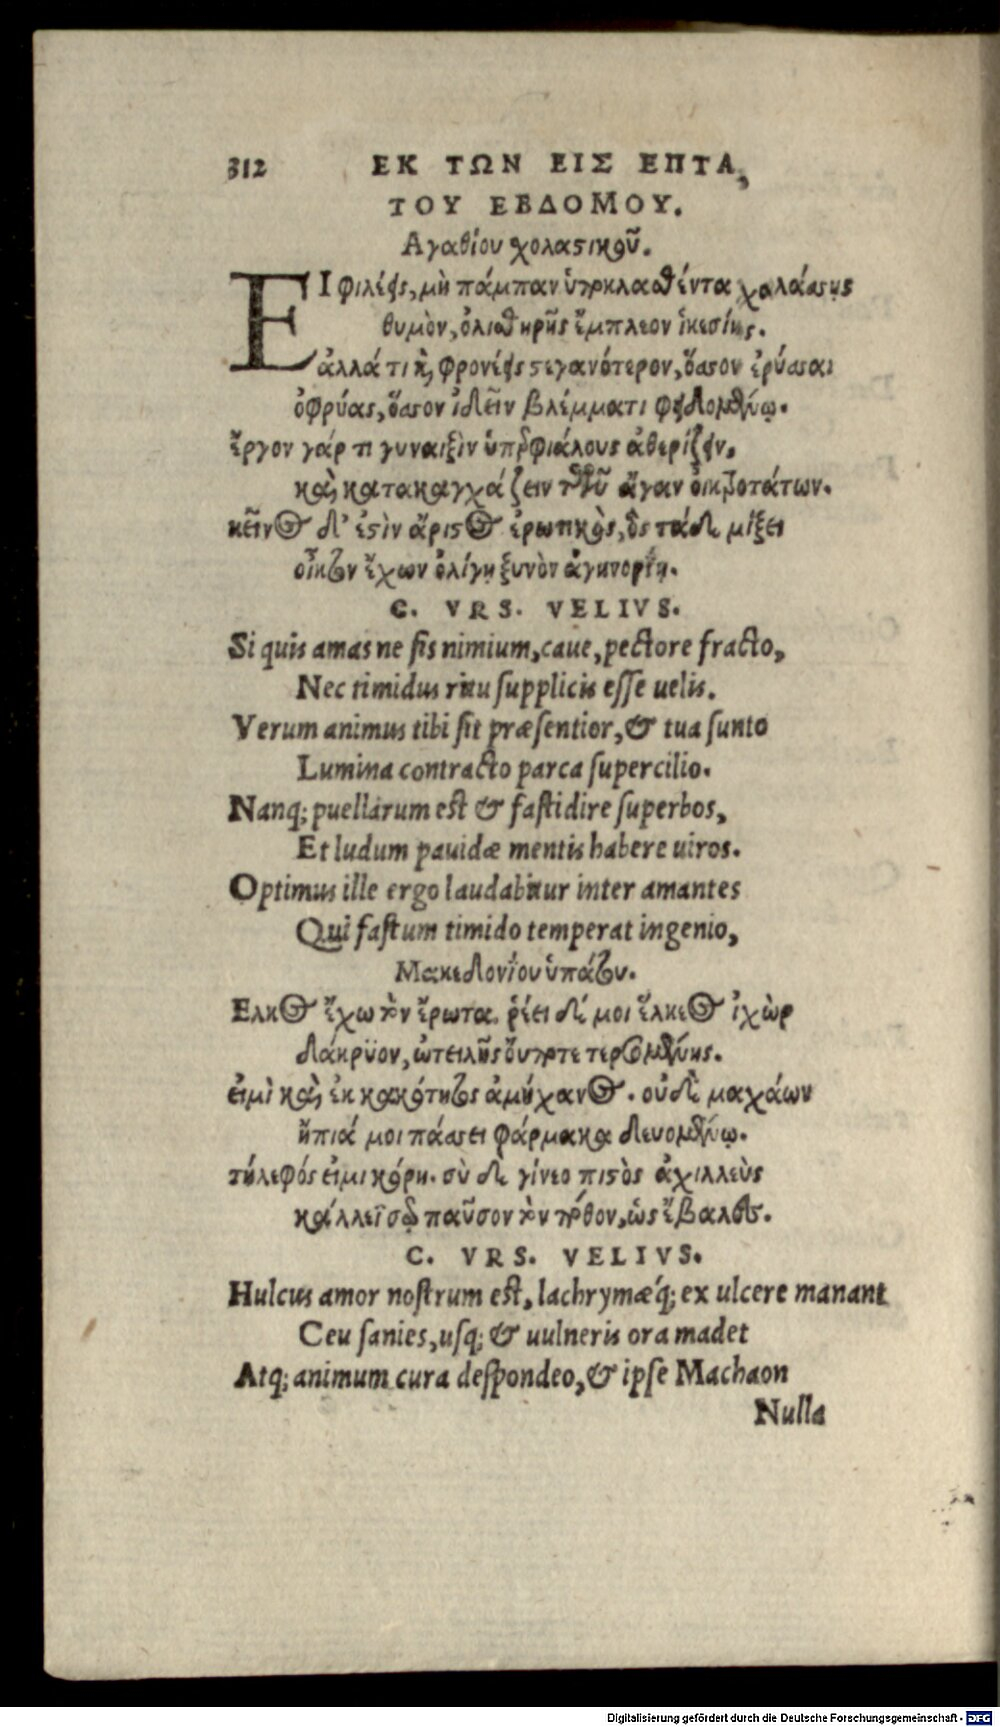 312 ΕΚ ΤΩΝ ΕΙΣ ΕΠΤΑ,
ΤΟΥ ΕΒΔΟΜΟΥ.
Αγαθίου χολαςικοῦ.
ΕΙ φιλέεις, μὴ πάμπαν ὑποκλασθέντα χαλάσσῃς
θυμὸν, ὀλισθηρῆς ἔμπλεον ἱκεσίης.
ἀλλά τι καὶ φρονέεις ςεγανότερον, ὅσσον ἐρύσσαι
ὀφρύας, ὅσσον ἰδεῖν βλέμματι φειδομένῳ.
ἔργον γάρ τι γυναιξὶν ὑπερφιάλους ἀθερίζειν,
καὶ κατακαγχάζειν τῶν ἄγαν οἰκτροτάτων.
κεῖνος δ' ἐςὶν ἄριςος ἐρωτικὸς, ὃς τάδε μίξει
οἶκτον ἔχων ὀλίγῃ ξυνὸν ἀγηνορίῃ.
C. VRS. VELIVS.
Si quis amas ne sis nimium, caue, pectore fracto,
Nec timidus ritu supplicis esse uelis.
Verum animus tibi sit præsentior, & tua sunto
Lumina contracto parca supercilio.
Nanq; puellarum est & fastidire superbos,
Et ludum pauidæ mentis habere uiros.
Optimus ille ergo laudabitur inter amantes
Qui fastum timido temperat ingenio,
Μακεδονΐου ὑπάτου.
Ελκος ἔχω τὸν ἔρωτα. ῥέει δέ μοι ἕλκεος ἰχὼρ
δάκρϋον, ὠτειλῆς οὔποτε τερσομένης.
εἰμὶ καὶ ἐκ κακότητος ἀμήχανος. οὐδὲ μαχάων
ἤπιά μοι πάσσει φάρμακα δευομένῳ.
τήλεφός εἰμι κόρη. σὺ δὲ γίνεο πιςὸς ἀχιλλεὺς
κάλλεϊ σῷ παῦσον τὸν πόθον, ὡς ἔβαλες.
C. VRS. VELIVS.
Hulcus amor nostrum est, lachrymæq́; ex ulcere manant
Ceu sanies, usq; & uulneris ora madet
Atq; animum cura despondeo, & ipse Machaon
Nulla
Digitalisierung gefördert durch die Deutsche Forschungsgemeinschaft - DFG